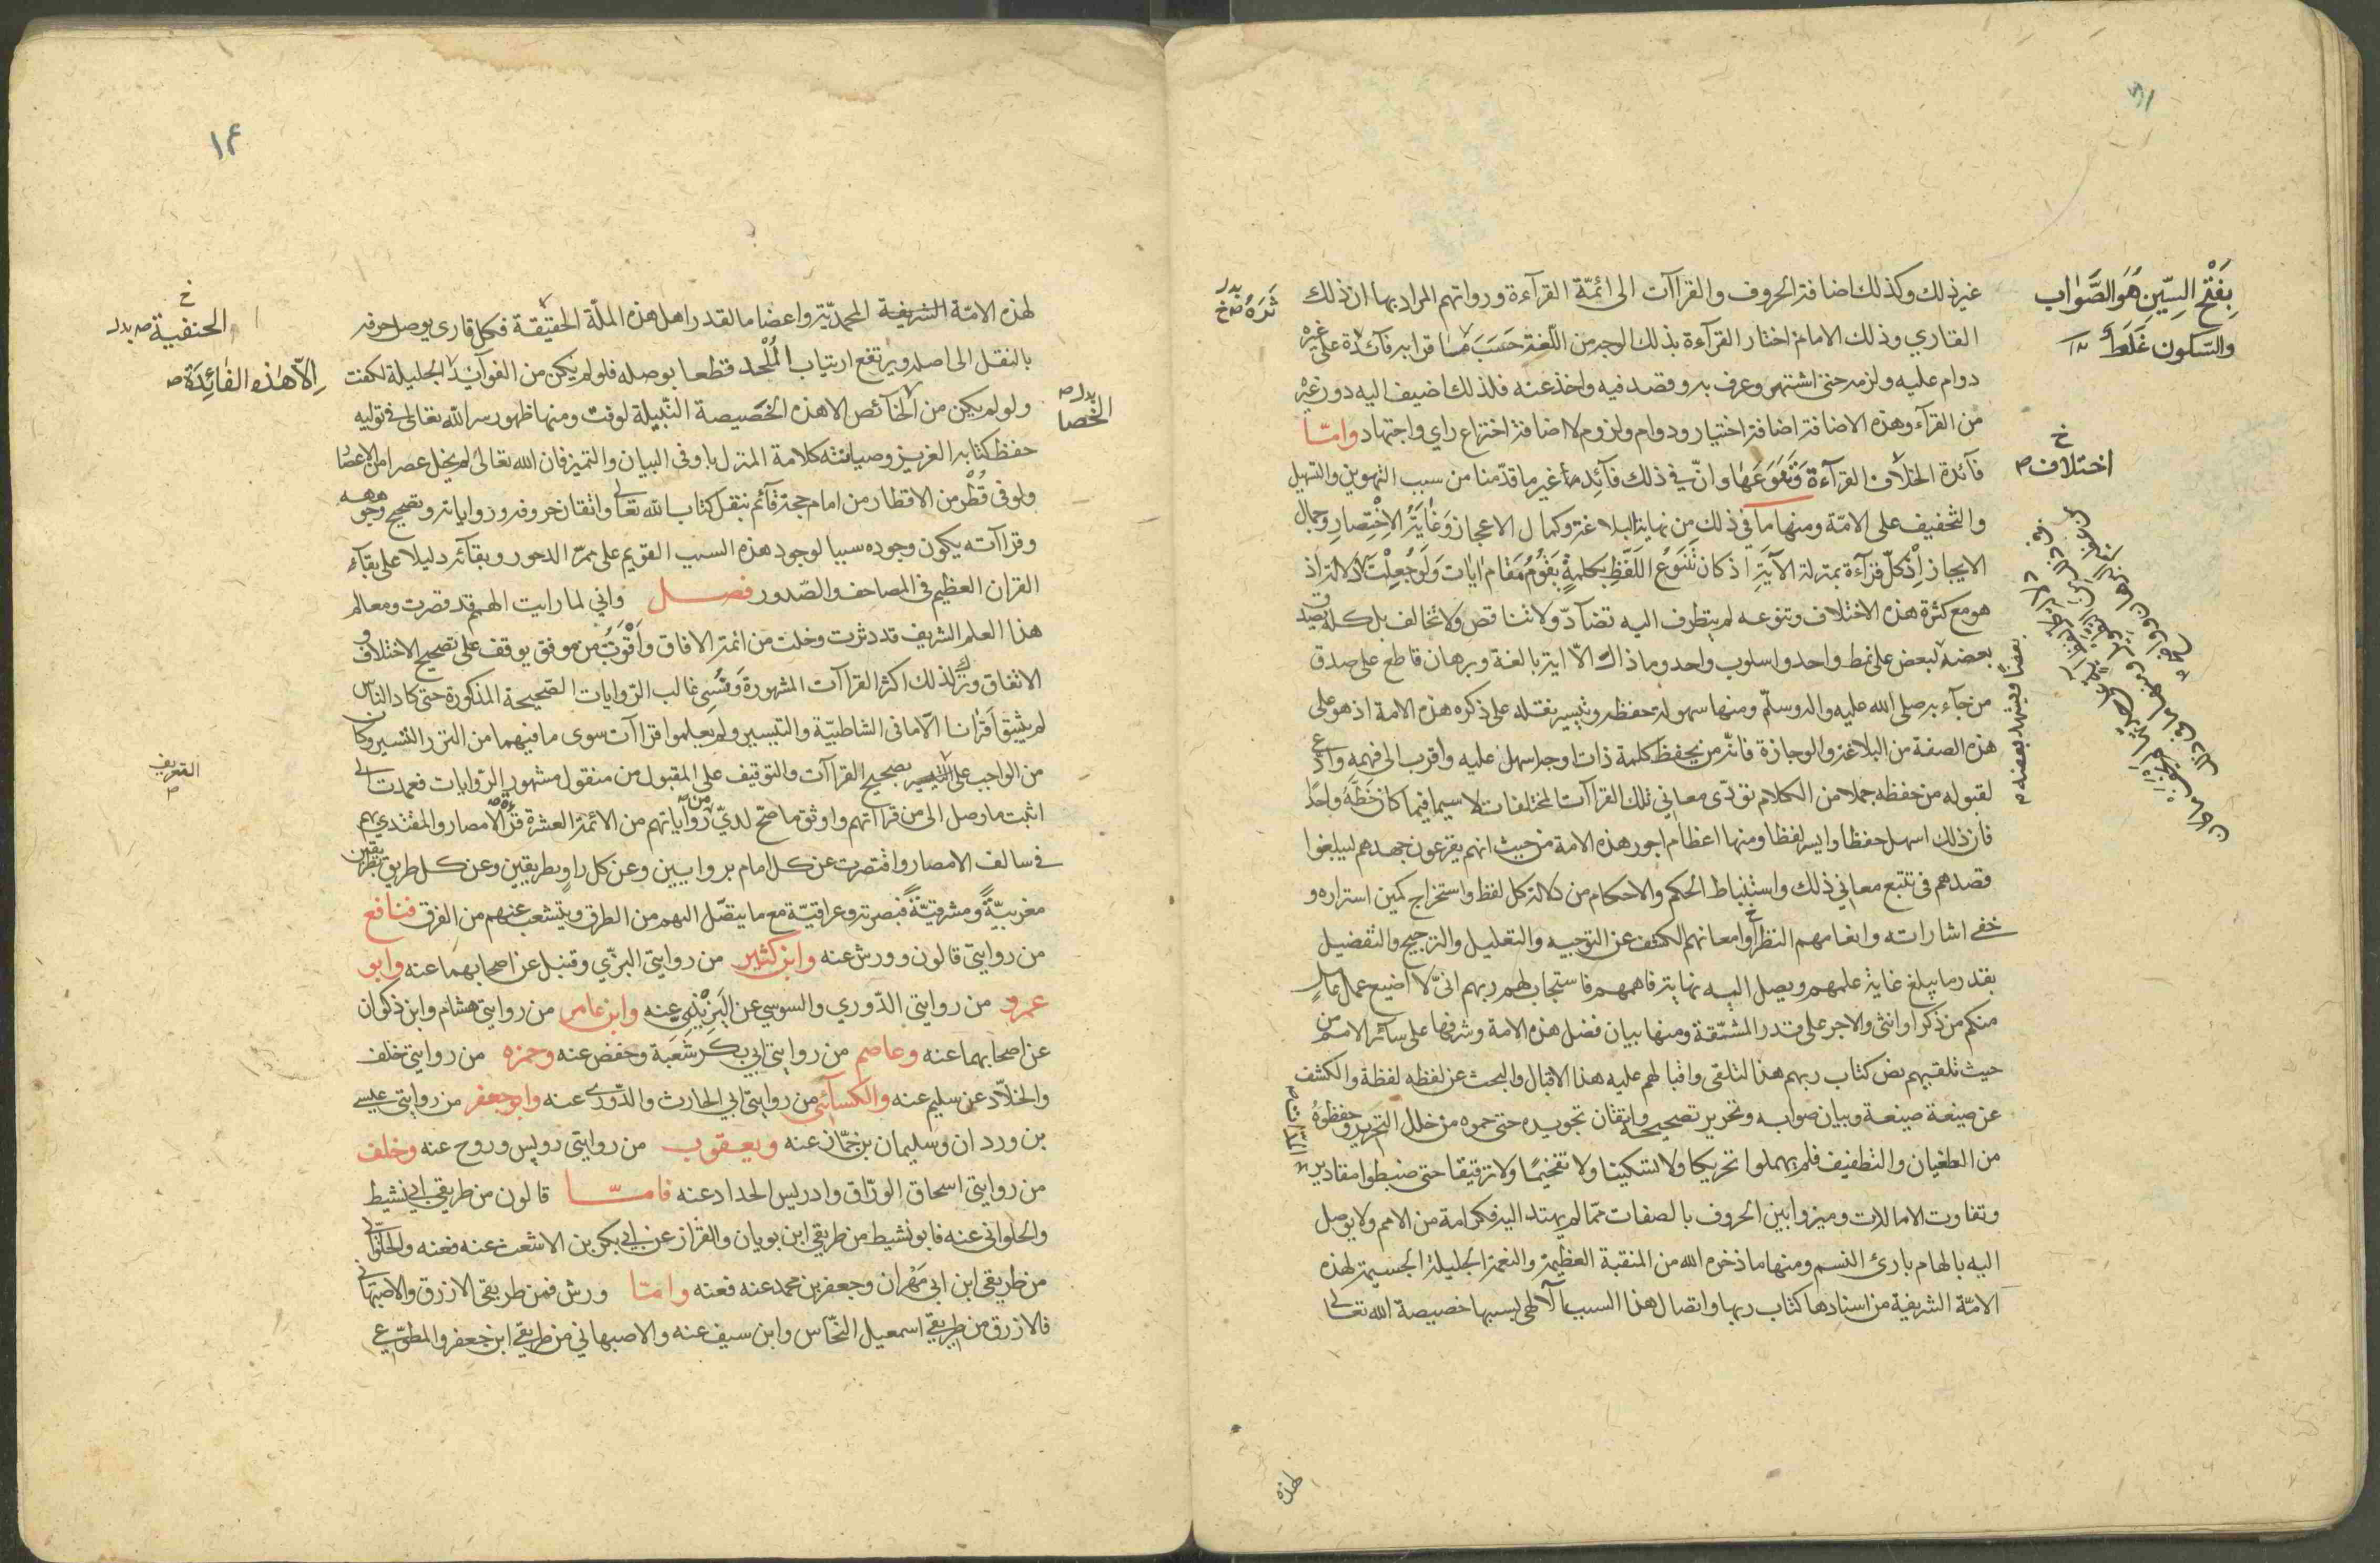 غير ذلك وكذلك اضافة الحروف والقراآت الى ائمّة القرآءة ورواتهم المراد بها ان ذلك
القاري وذلك الامام اختار القرآءة بذلك الوجه من اللّغة حَسَبَ ما قرا به فآثره على غيره
دوام عليه ولزمه حتى اشتهر وعرف به وقصد فيه واخذ عنه فلذلك اضيف اليه دون غيره
من القرآء وهذه الاضافة اضافة اختيار ودوام ولزوم لا اضافة اختراع راي واجتهاد وامّا
فآئدة اختلاف القرآءة وَتَنَوُّعِهَا وانّ في ذلك فآئد ما غير ما قدّمنا من سبب التهوين والتسهيل
والتخفيف على الامّة ومنها ما في ذلك من نهاية البلاغة وكمال الاعجاز وَغَايَةُ الاِخْتِصَارِ وجمال
الايجاز اِذْ كلّ قرآءة بمنزلة الآيَةِ اذ كان تَنَوُّعُ اللَفْظِ بِكلمةٍ يَقُومُ مَقام اٰيات وَلَوْ جُعِلَتْ دَلالة اذ
هو مع كثرة هذه الاختلاف وتنوعه لم يتطرف اليه تضآدّ ولا تناقض ولا تخالف بل كله يصدق
بعضه لبعض على نمط واحد واسلوب واحد وما ذاك الّا اية بالغة وبرهان قاطع على صدق
من جآء به صلى الله عليه واله وسلّم ومنها سهولة حفظه وتيسير نقله على ذكره هذه الامة اذ هو على
هذه الصفة من البلاغة والوجازة فانّه من يحفظ كلمة ذات اوجه اسهل عليه واقرب الى فهمه وادعى
لقبوله من حفظه جملا من الكلام تؤدّى معاني تلك القراآت المختلفات لا سيما فيما كان خَطّه واحدًا
فان ذلك اسهل حفظا وايسر لفظا ومنها اعظام اجور هذه الامة من حيث انهم يفرغون جهدهم ليبلغوا
قصدهم في تتبع معاني ذلك واستنباط الحكم والاحكام من دلالة كل لفظ واستخراج كمين اسراره و
خفي اشاراته وانعامهم النظر وامعانهم الكشف عن التوجيه والتعليل والترجيح والتفضيل
بقدر ما يبلغ غاية علمهم ويصل اليه نهاية فاهمهم فاستجاب لهم ربهم انّي لا اضيع عمل عامل
منكم من ذكر او انثى والاجر على قدر المشقّة ومنها بيان فضل هذه الامة وشرفها على سائر الامم من
حيث تلقيهم نص كتاب ربهم هذا لتلقى واقبالهم عليه هذا الاقبال والبحث عن لفظه لفظة والكشف
عن صيغة صيغة وبيان صوابه وتحرير تصحيحه واتقان تجويده حتى حموه من خلل التحريف وحفظوهُ
من الطغيان والتطفيف فلم يهملوا تحريكا ولا تسكينا ولا تفخيمًا ولا ترقيقا حتى ضبطوا مقادير
وتفاوت الامالات وميزوا بين الحروف بالصفات ممّا لم يهتد اليه فكر امة من الامم ولا يوصل
اليه بالهام بارئ النسم ومنها ما ذخره الله من المنقبة العظيمة والنعمة الجليلة الجسيمة لهذه
الامّة الشريفة من اسنادها كتاب ربها واتصال هذا السبب الآلهي بسببها خصيصة الله تعالى
بِفَتْحِ السِّينِ هُوَ الصَّوَاب
وَالسّكون غَلَطٌ
خ
اختلاف ص
لهذه
١٤
لهذه الامّة الشريفة المحمديّة واعضاما لقدر اهل هذه الملّة الحقيقة فكل قاري يوصل حرفه
بالنقل الى اصله ويرتفع ارتياب المُلْحد قطعا بوصله فلو لم يكن من الفوآئد الجليلة لكفت
ولو لم يكن من الخآئص الا هذه الخصّيصة النّبيلة لوفت ومنها ظهور سر الله تعالى في توليه
حفظ كتابه العزيز وصيانته كلامة المنزل باوفى البيان والتميز فان الله تعالى لم يخل عصرا من الاعصار
ولو فى قُطْر من الاقطار من امام حجة قآئم بنقل كتاب الله تعالى واتقان حروفه ورواياته وتصحيح وجوهه
وقراآته يكون وجوده سببا لوجود هذه السبب القويم على ممرّ الدهور وبقآئه دليلا على بقآء
القران العظيم فى المصاحف والصّدور فصل وانّي لما رايت الهمم قد قصرت ومعالم
هذا العلم الشريف قد دثرت وخلت من ائمة الافاق وَأقْوَتْ من موفق يوقف على تصحيح الاختلاف و
الاتفاق وترك لذلك اكثر القراآت المشهورة وَنُسِي غالب الرّوايات الصّحيحة المذكورة حتى كاد الناس
لم يثبتوا قرانا الّا ما فى الشاطبيّة والتيسير ولم يعلموا قراآت سوى ما فيهما من النزر اليسير وكان
من الواجب على التعريف بصحيح القراآت والتوقيف على المقبول من منقول مشهور الرّوايات فعمدت الى
اثبت ما وصل الى من قراآتهم واوثق ما صحّ لديّ من رواياتهم من الائمة العشرة قرّاء الأمصار والمقتدي بهم
في سالف الامصار واقتصرت عن كل امام بروايتين وعن كل راوٍ بطريقين وعن كل طريق بطريقين
مغربيّةً ومشرقيّةً فبصريّه وعراقيّة مع ما يتصّل اليهم من الطرق ويتشعب عنهم من الفرق فنافع
من روايتى قالون وورش عنه وابن كثير من روايتى البزّي وقنبل عن اصحابهما عنه وابو
عمرو من روايتي الدّوري والسوسي عن اليَزِيْدِي عنه وابن عامر من روايتى هشام وابن ذكوان
عن اصحابهما عنه وعاصم من روايتى ابي بكر شعبة وحفص عنه وحمزه من روايتي خلف
والخلّاد عن سليم عنه والكسآئي من روايتى ابي الحارث والدّوري عنه وابو جعفر من روايتي عيسى
بن وردان وسليمان بن جمّاز عنه ويعقوب من روايتى رويس وروح عنه وخلف
من روايتي اسحاق الورّاق وادريس الحداد عنه فامّا قالون من طريقي ابي نشيط
والحلواني عنه فابو نشيط من طريقي ابن بويان والقزاز عن ابي بكر بن الاشعث عنه فعنه والحلواني
من طريقي ابن ابي مَهْران وجعفر بن محمد عنه فعنه وامّا ورش فمن طريقي الازرق والاصبهاني
فالازرق من طريقي اسمعيل النخّاس وابن سيف عنه والاصبهاني من طريقي ابن جعفر والمطوّعي
خ
الحنفية صح بدل
اِلّا هٰذه الفَائِدَة ص
بدل ص
الخصا
التعريف